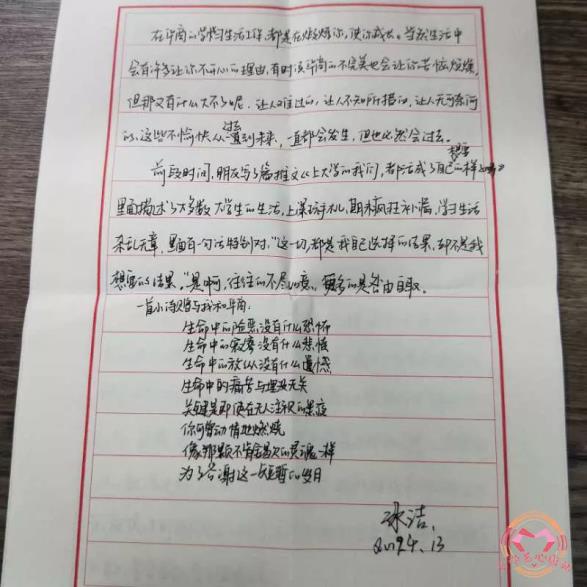 在华南的学习生活工作,都是在燃烧你,使你成长。当然生活中
会有许多让你不开心的理由,有时该华南的不完美也会让你苦恼烦燥,
但那又有什么大不了呢,让人难过的,让人不知所措的,让人无可奈何
的,这些不愉快从过去到未来,一直都会发生,但也必然会过去。
前段时间,朋友写了篇推文《上大学的我们,都活成了自己想要的样子吗》
里面描述了大多数大学生的生活,上课玩手机,期末疯狂补漏,学习生活
杂乱无章,里面有一句话特别对,"这一切,都是我自己选择的结果,却不是我
想要的结果,"是啊,往往的不尽如意,更多的是咎由自取。
一首小诗赠与我和华南:
生命中的险恶没有什么恐怖
生命中的寂寥没有什么悲恨
生命中的放纵没有什么遗憾
生命中的痛苦与埋没无关
关键是即便在无人注视的黑夜
你可曾动情地燃烧
像那颗不肯安息的灵魂一样
为了答谢这一短暂的岁月
冰洁
2019.4.13